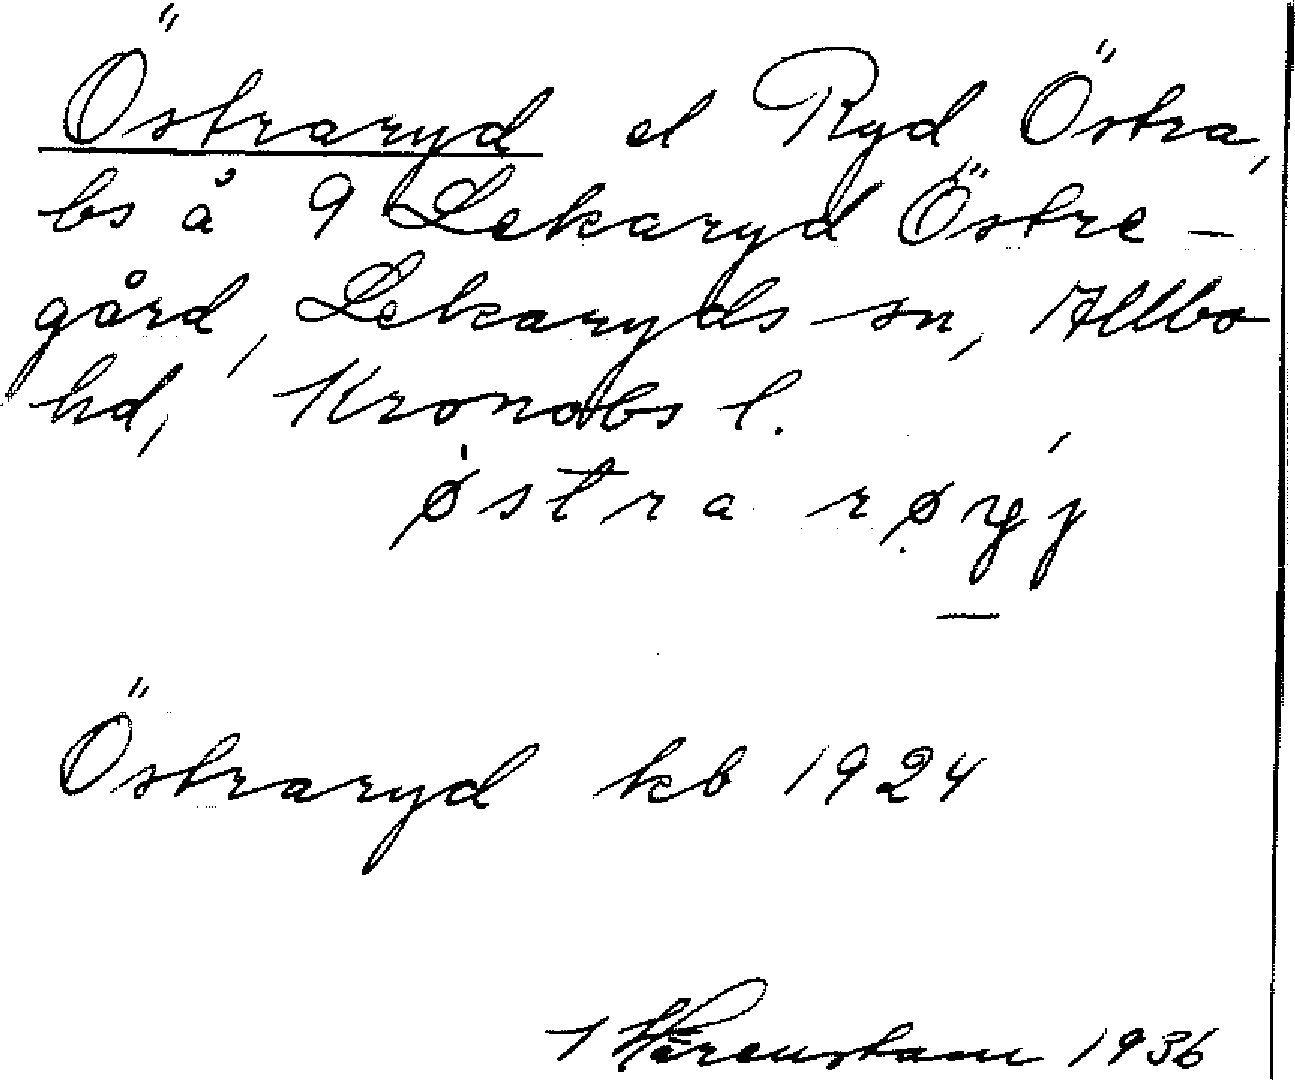 Östraryd el Ryd Östra,
bs å 9 Lekaryd Östre-
gård, Lekaryds sn, Allbo
hd, Kronobs l.
østra røyj
Östraryd kb 1924
1936